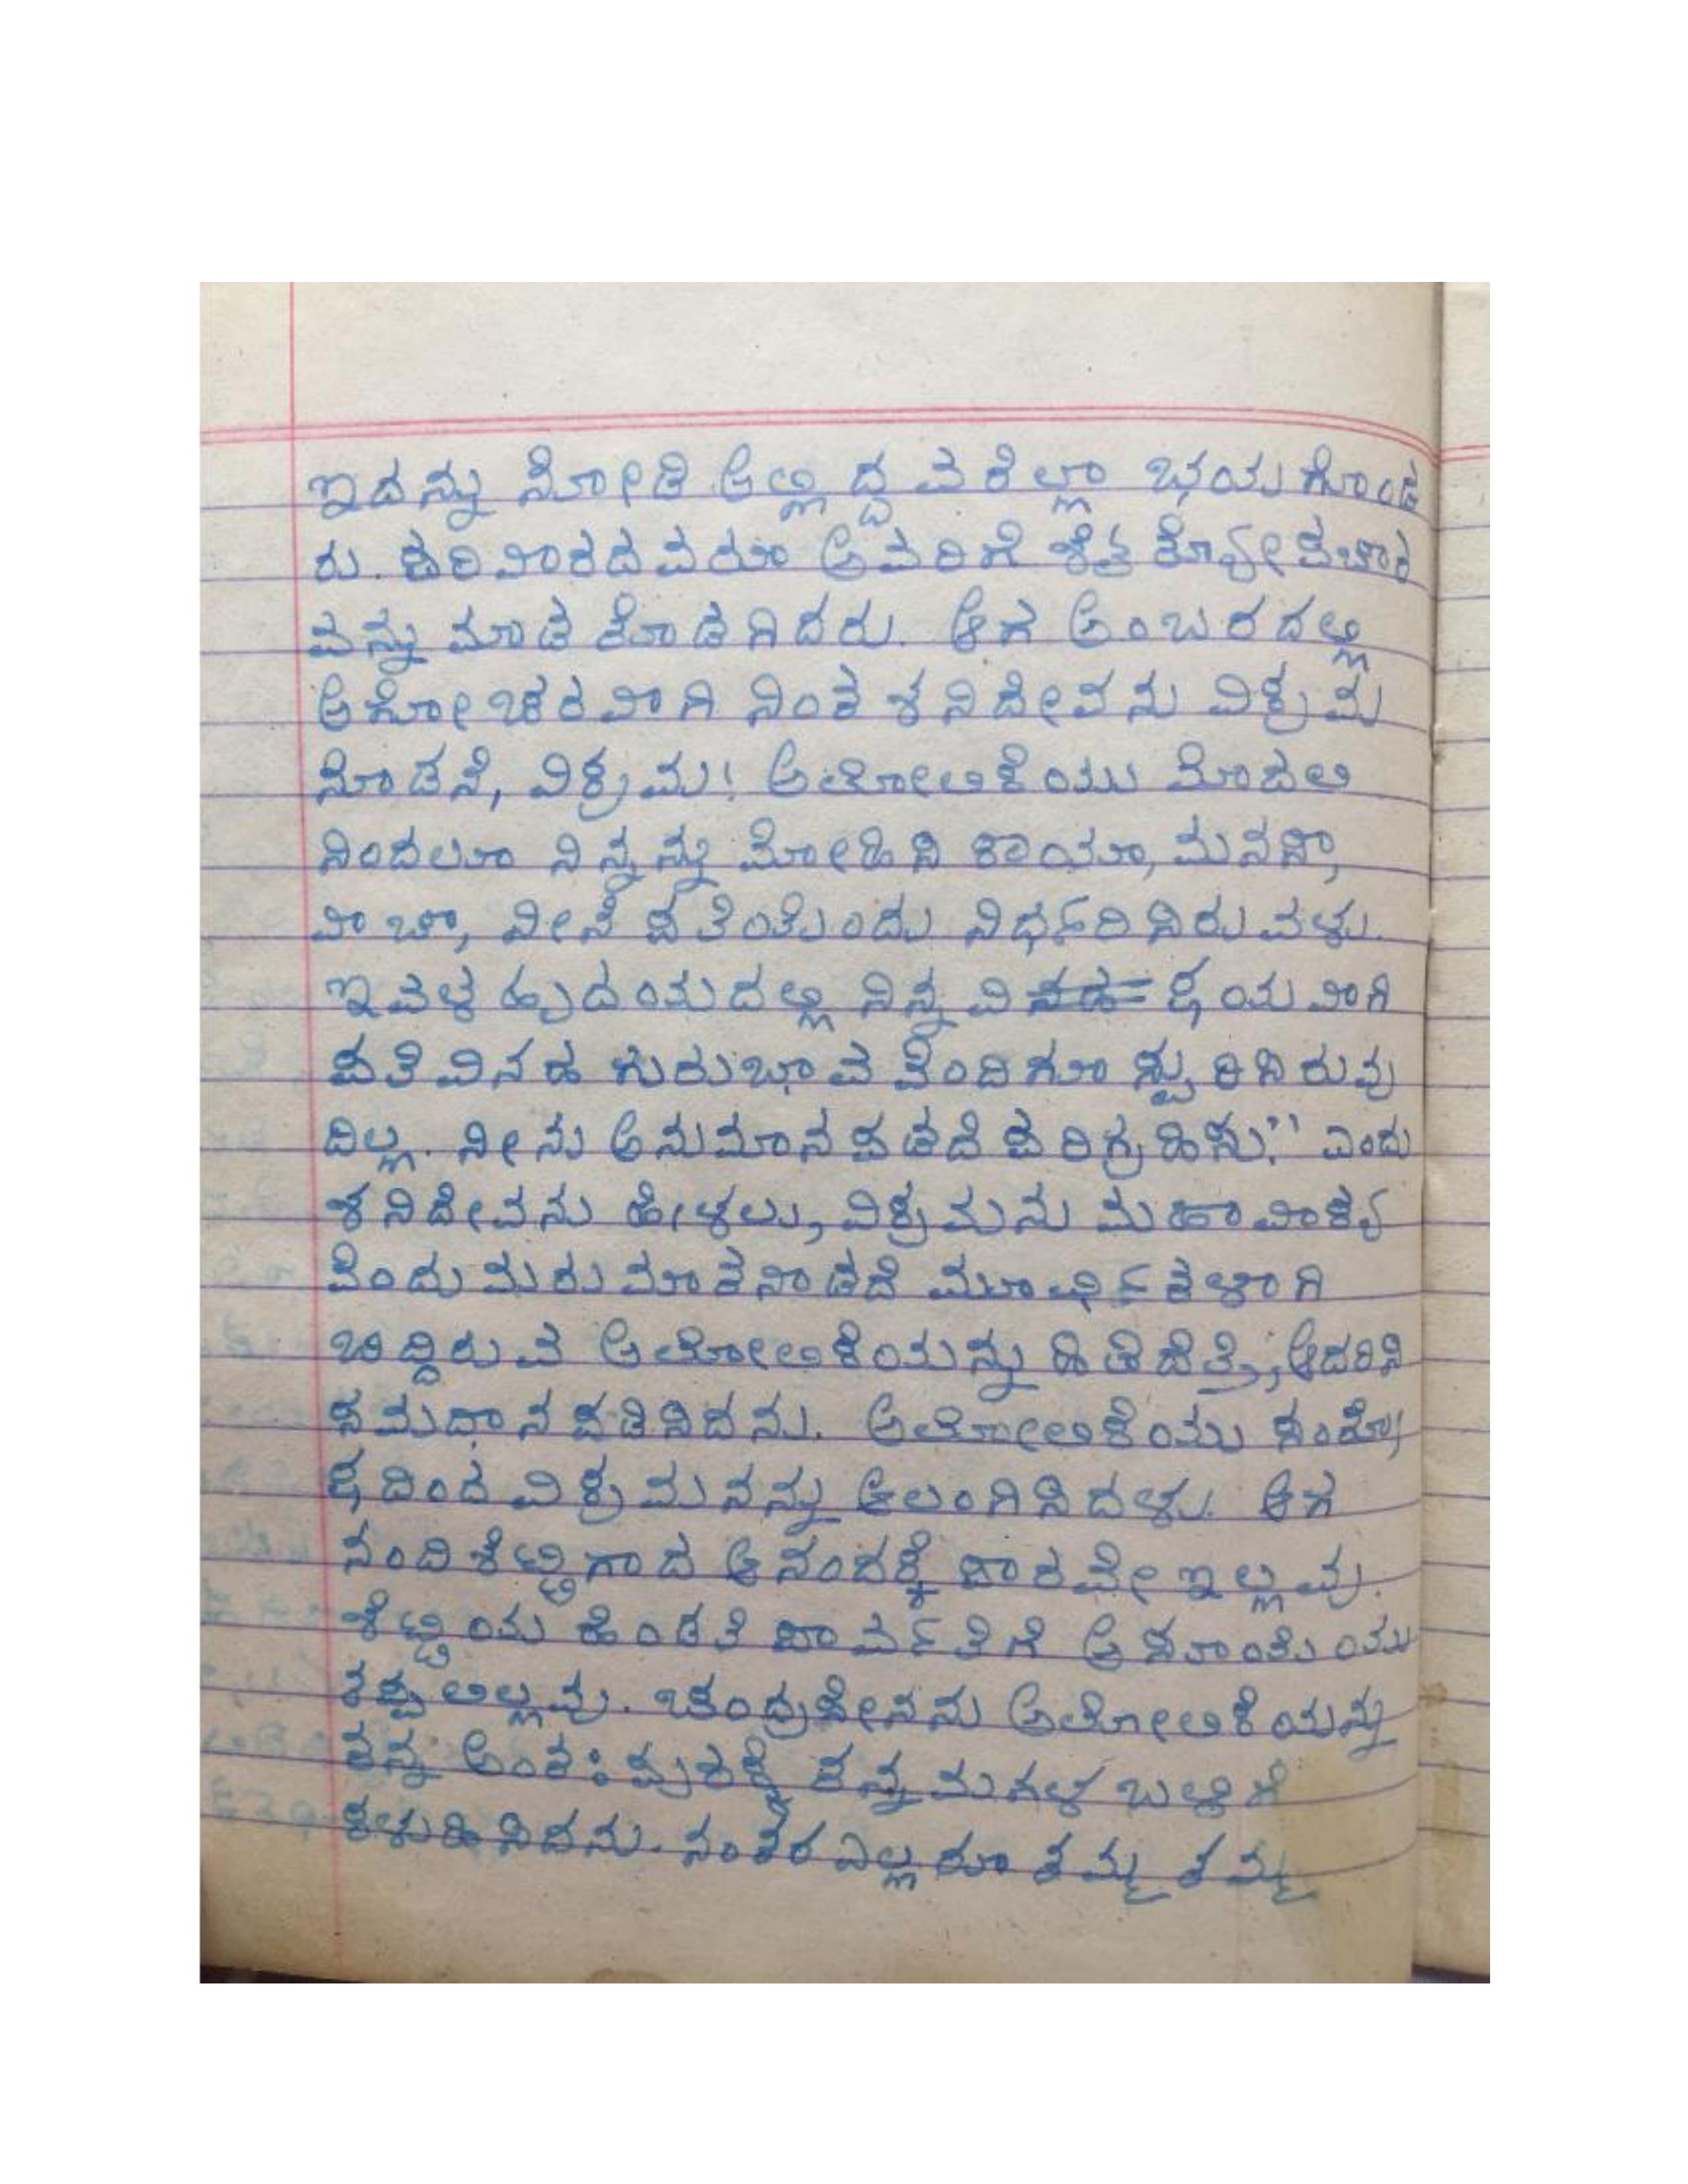 ಇದನ್ನು ನೋಡಿ ಅಲ್ಲಿದ್ದವರೆಲ್ಲಾ ಭಯಗೊಂಡ
ರು. ಪರಿವಾರದವರೂ ಅವರಿಗೆ ಶೈತ್ಯೋಪಚಾರ
ವನ್ನು ಮಾಡತೊಡಗಿದರು. ಆಗ ಅಂಬರದಲ್ಲಿ
ಅಗೋಚರವಾಗಿ ನಿಂತ ಶನಿದೇವನು ವಿಕ್ರಮ
ನೊಡನೆ, ವಿಕ್ರಮ! ಅಲೋಲಿಕೆಯು ಮೊದಲಿ
ನಿಂದಲೂ ನಿನ್ನನ್ನು ಮೋಹಿಸಿ ಕಾಯಾ, ಮನಸಾ,
ವಾಚಾ, ನೀನೆ ಪತಿಯೆಂದು ನಿರ್ಧರಿಸಿರುವಳು.
ಇವಳ ಹೃದಯದಲ್ಲಿ ನಿನ್ನ ವಿಷಯವಾಗಿ
ಪತಿ ವಿನಹ ಗುರುಭಾವ ವೆಂದಿಗೂ ಸ್ಪುರಿಸಿರುವು
ದಿಲ್ಲ. ನೀನು ಅನುಮಾನ ಪಡದೆ ಪರಿಗ್ರಹಿಸು." ಎಂದು
ಶನಿದೇವನು ಹೇಳಲು, ವಿಕ್ರಮನು ಮಹಾವಾಕ್ಯ
ವೆಂದು ಮರುಮಾತನಾಡದೆ ಮೂರ್ಛಿತಳಾಗಿ
ಬಿದ್ದಿರುವ ಅಲೋಲಿಕೆಯನ್ನು ಹಿಡಿದೆತ್ತಿ, ಆದರಿಸಿ
ಸಮಧಾನ ಪಡಿಸಿದನು. ಅಲೋಲಿಕೆಯು ಸಂತೋ
ಷದಿಂದ ವಿಕ್ರಮನನ್ನು ಆಲಂಗಿಸಿದಳು. ಆಗ
ನಂದಿಶೆಟ್ಟಿಗಾದ ಆನಂದಕ್ಕೆ ಪಾರವೇ ಇಲ್ಲವು.
ಶೆಟ್ಟಿಯ ಹೆಂಡತಿ ಪಾರ್ವತಿಗೆ ಅಸೂಯೆಯು
ತಪ್ಪಲಿಲ್ಲವು. ಚಂದ್ರಸೇನನು ಅಲೋಲಿಕೆಯನ್ನು
ತನ್ನ ಅಂತಃಪುರಕ್ಕೆ ತನ್ನ ಮಗಳ ಬಳಿಗೆ
ಕಳುಹಿಸಿದನು. ನಂತರ ಎಲ್ಲರೂ ತಮ್ಮ ತಮ್ಮ